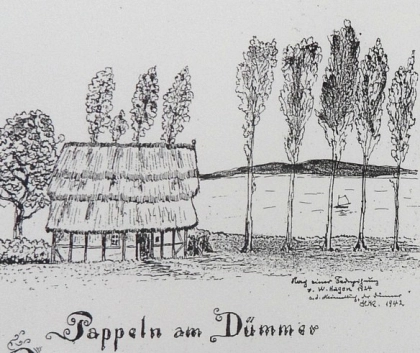 Nach einer Federzeichnung
v. W. Hagen 1924
a. d. Heimatbl.
1942.
Pappeln am Dümmer